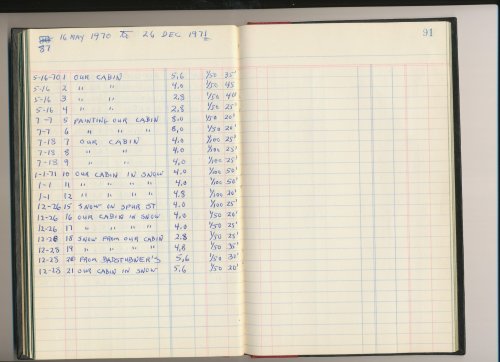 16 MAY 1970 TO 26 DEC 1971
87
91
5-16-70 1 OUR CABIN 5.6 1/50 35'
5-16 2 " " 4.0 1/50 45'
5-16 3 " " 2.8 1/50 40'
5-16 4 " " 2.8 1/50 25'
7-7 5 PAINTING OUR CABIN 8.0 1/50 20'
7-7 6 " " " 8.0 1/50 20'
7-13 7 OUR CABIN 4.0 1/100 25'
7-13 8 " " 4.0 1/100 25'
7-13 9 " " 4.0 1/100 25'
1-1-71 10 OUR CABIN IN SNOW 4.0 1/100 50'
1-1 11 " " " " 4.0 1/100 50'
1-1 12 " " " " 4.8 1/100 20'
12-26 15 SNOW ON SPUR ST. 4.0 1/100 25'
12-26 16 OUR CABIN IN SNOW 4.0 1/50 20'
12-26 17 " " " " 4.0 1/50 25'
12-28 18 SNOW FROM OUR CABIN 2.8 1/50 25'
12-28 19 " " " " 4.8 1/50 35'
12-28 20 FROM 5.6 1/50 30'
12-28 21 OUR CABIN IN SNOW 5.6 1/50 20'